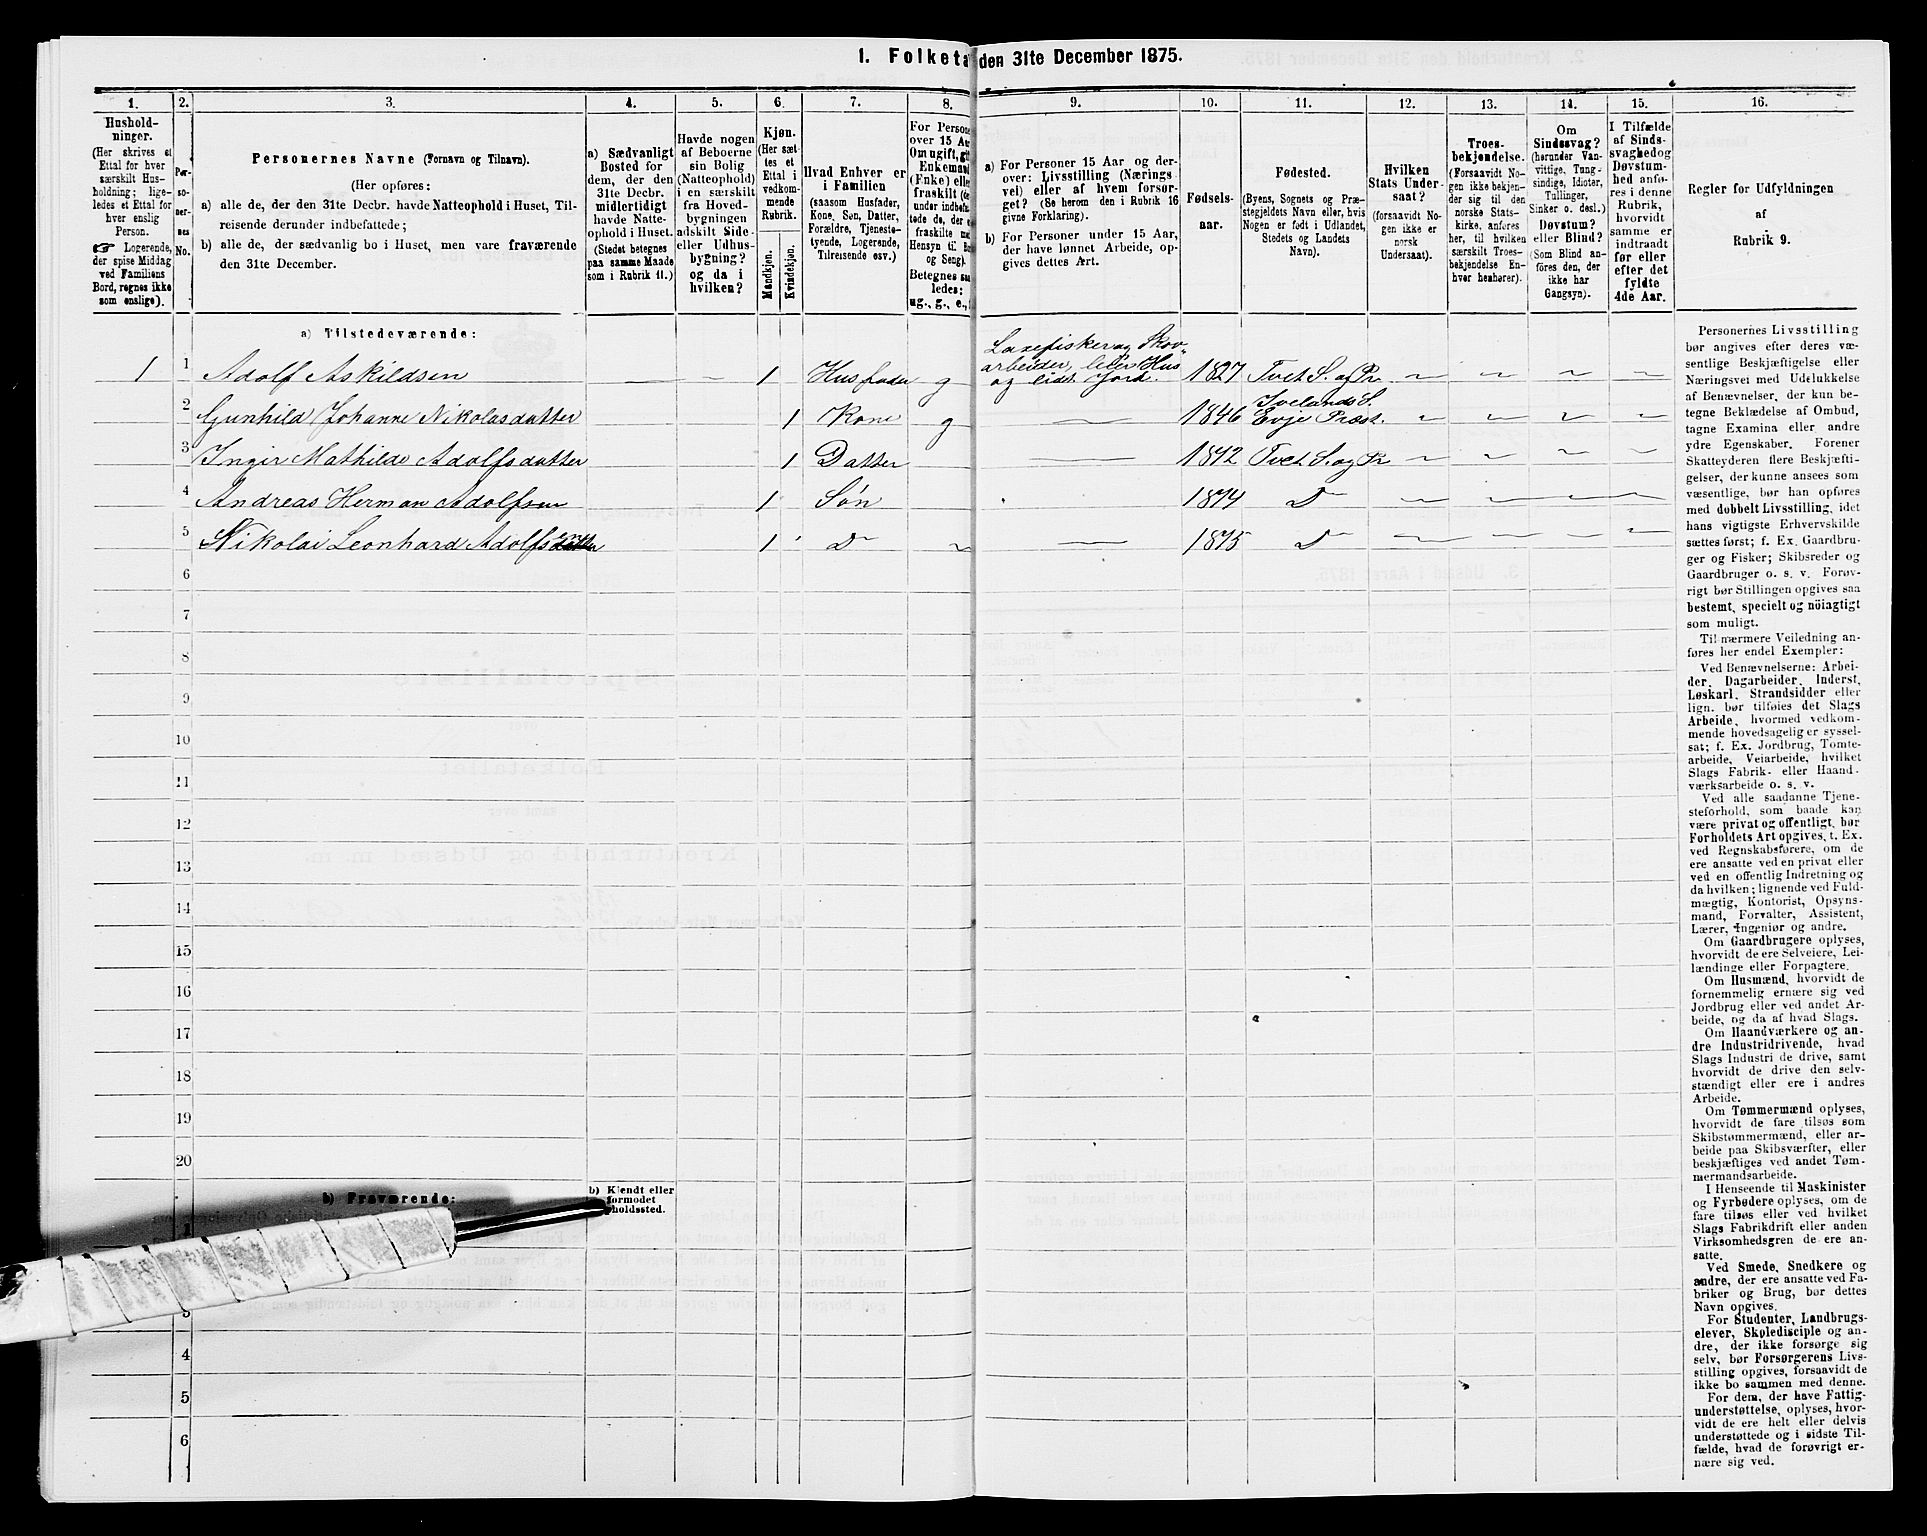 1. Folketa den 31te December 1875.
1. 2. 3. 4. 5. 6. 7. 8. 9. 10. 11. 12. 13. 14. 15. 16.
Hushold-
ninger.
(Her skrives et
Ettal for hver
særskilt Hus-
holdning; lige-
ledes et Ettal for
hver enslig
Person.
☞ Logerende,
der spise Middag
ved Familiens
Bord, regnes ikke
som enslige).
Per-
so-
ner-
nes
No.
Personernes Navne (Fornavn og Tilnavn).
(Her opføres:
a) alle de, der den 31te Decbr. havde Natteophold i Huset, Til-
reisende derunder indbefattede;
b) alle de, der sædvanlig bo i Huset, men vare fraværende
den 31te December.
a) Sædvanligt
Bosted for
dem, der den
31te Decbr.
midlertidigt
havde Natte-
ophold i Huset.
(Stedet betegnes
paa samme Maade
som i Rubrik 11.)
Havde nogen
af Beboerne
sin Bolig
(Natteophold)
i en særskilt
fra Hoved-
bygningen
adskilt Side-
eller Udhus-
bygning?
og da i
hvilken?
Kjøn.
(Her sæt-
tes et
Ettal i
vedkom-
mende
Rubrik.
Mandkjøn.
Kvindekjøn.
Hvad Enhver er
i Familien
(saasom Husfader,
Kone, Søn, Datter,
Forældre, Tjeneste-
tyende, Logerende,
Tilreisende osv.)
For Persone
over 15 Aa
Om ugift, gi
Enkemand
(Enke) elle
fraskilt (de
under indbefa
tede de, der e
fraskilte m
Hensyn til Bo
og Seng).
Betegnes saa
ledes:
ug., g., e.,
a) For Personer 15 Aar og der-
over: Livsstilling (Nærings
vei) eller af hvem forsør-
get? (Se herom den i Rubrik 16
givne Forklaring).
b) For Personer under 15 Aar,
der have lønnet Arbeide, op-
gives dettes Art.
Fødsels-
aar.
Fødested.
(Byens, Sognets og Præ-
stegjeldets Navn eller, hvis
Nogen er født i Udlandet,
Stedets og Landets
Navn).
Hvilken
Stats Under-
saat?
(forsaavidt No-
gen ikke er
norsk
Undersaat).
Troes-
bekjendelse.
(Forsaavidt No-
gen ikke bekjen-
der sig til den
norske Stats-
kirke, anføres
her, til hvilken
særskilt Troes-
bekjendelse En-
hver henhører).
Om
Sindssvag?
(herunder Van-
vittige, Tung-
sindige, Idioter,
Tullinger,
Sinker o. desl.)
Døvstum?
eller Blind?
(Som Blind an-
føres den, der
ikke har
Gangsyn).
I Tilfælde
af Sinds-
svaghed og
Døvstum-
hed anfø-
res i denne
Rubrik,
hvorvidt
samme er
indtraadt
før eller
efter det
fyldte
4de Aar.
Regler for Udfyldningen
af
Rubrik 9.
a) Tilstedeværende:
1 1 Adolf Askildsen 1 Husfader g Laxefisker og Skov-
arbeider, leier Hus
og lidt Jord. 1827 Tvet S. og Pr
2 Gunhild Johanne Nikolasdatter 1 Kone g 1846 Ivelands S.
Evje Præst.
3 Ingir Mathilde Adolfsdatter 1 Datter 1872 Tvet S. og Pr
4 Andreas Herman Adolfsen 1 Søn 1874 Do
5 Nikolai Leonhard Adolfs 1 Do 1875 Do
6
7
8
9
10
11
12
13
14
15
16
17
18
19
20
b) Fraværende:
b) Kjendt eller
formodet
holdssted.
1
3
4
5
6
Personernes Livsstilling
bør angives efter deres væ-
sentlige Beskjæftigelse eller
Næringsvei med Udelukkelse
af Benævnelser, der kun be-
tegne Beklædelse af Ombud,
tagne Examina eller andre
ydre Egenskaber. Forener
Skatteyderen flere Beskjæfti-
gelser, der kunne ansees som
væsentlige, bør han opføres
med dobbelt Livsstilling, idet
hans vigtigste Erhvervskilde
sættes først; f. Ex. Gaardbru-
ger og Fisker; Skibsreder og
Gaardbruger o. s. v. Forøv-
rigt bør Stillingen opgives saa
bestemt, specielt og nöiagtigt
som muligt.
Til nærmere Veiledning an-
føres her endel Exempler:
Ved Benævnelserne: Arbei-
der, Dagarbeider, Inderst,
Løskarl, Strandsidder eller
lign. bør tilføies det Slags
Arbeide, hvormed vedkom-
mende hovedsagelig er syssel-
sat; f. Ex. Jordbrug, Tomte-
arbeide, Veiarbeide, hvilket
Slags Fabrik- eller Haand-
værksarbeide o. s. v.
Ved alle saadanne Tjene-
steforhold, som baade kan
være privat og offentligt, bør
Forholdets Art opgives, t. Ex.
ved Regnskabsførere, om de
ere ansatte ved en privat eller
ved en offentlig Indretning og
da hvilken; lignende ved Fuld-
mægtig, Kontorist, Opsyns-
mand, Forvalter, Assistent,
Lærer, Ingeniør og andre.
Om Gaardbrugere oplyses,
hvorvidt de ere Selveiere, Lei-
lændinge eller Forpagtere.
Om Husmænd, hvorvidt de
fornemmelig ernære sig ved
Jordbrug eller ved andet Ar-
beide, og da af hvad Slags.
Om Haandværkere og an-
dre Industridrivende, hvad
Slags Industri de drive, samt
hvorvidt de drive den selv-
stændigt eller ere i andres
Arbeide.
Om Tømmermænd oplyses,
hvorvidt de fare tilsøs som
Skibstømmermænd, eller ar-
beide paa Skibsværfter, eller
beskjæftiges ved andet Tøm-
mermandsarbeide.
I Henseende til Maskinister
og Fyrbødere oplyses, om de
fare tilsøs eller ved hvilket
Slags Fabrikdrift eller anden
Virksomhedsgren de ere an-
satte.
Ved Smede, Snedkere og
andre, der ere ansatte ved Fa-
briker og Brug, bør dettes
Navn opgives.
For Studenter, Landbrugs-
elever, Skoledisciple og an-
dre, der ikke forsørge sig
selv, bør Forsørgerens Livs-
stilling opgives, forsaavidt de
ikke bo sammen med denne.
For dem, der have Fattig-
understøttelse, oplyses, hvor-
vidt de ere helt eller delvis
understøttede og i sidste Til-
fælde, hvad de forøvrigt er-
nære sig ved.